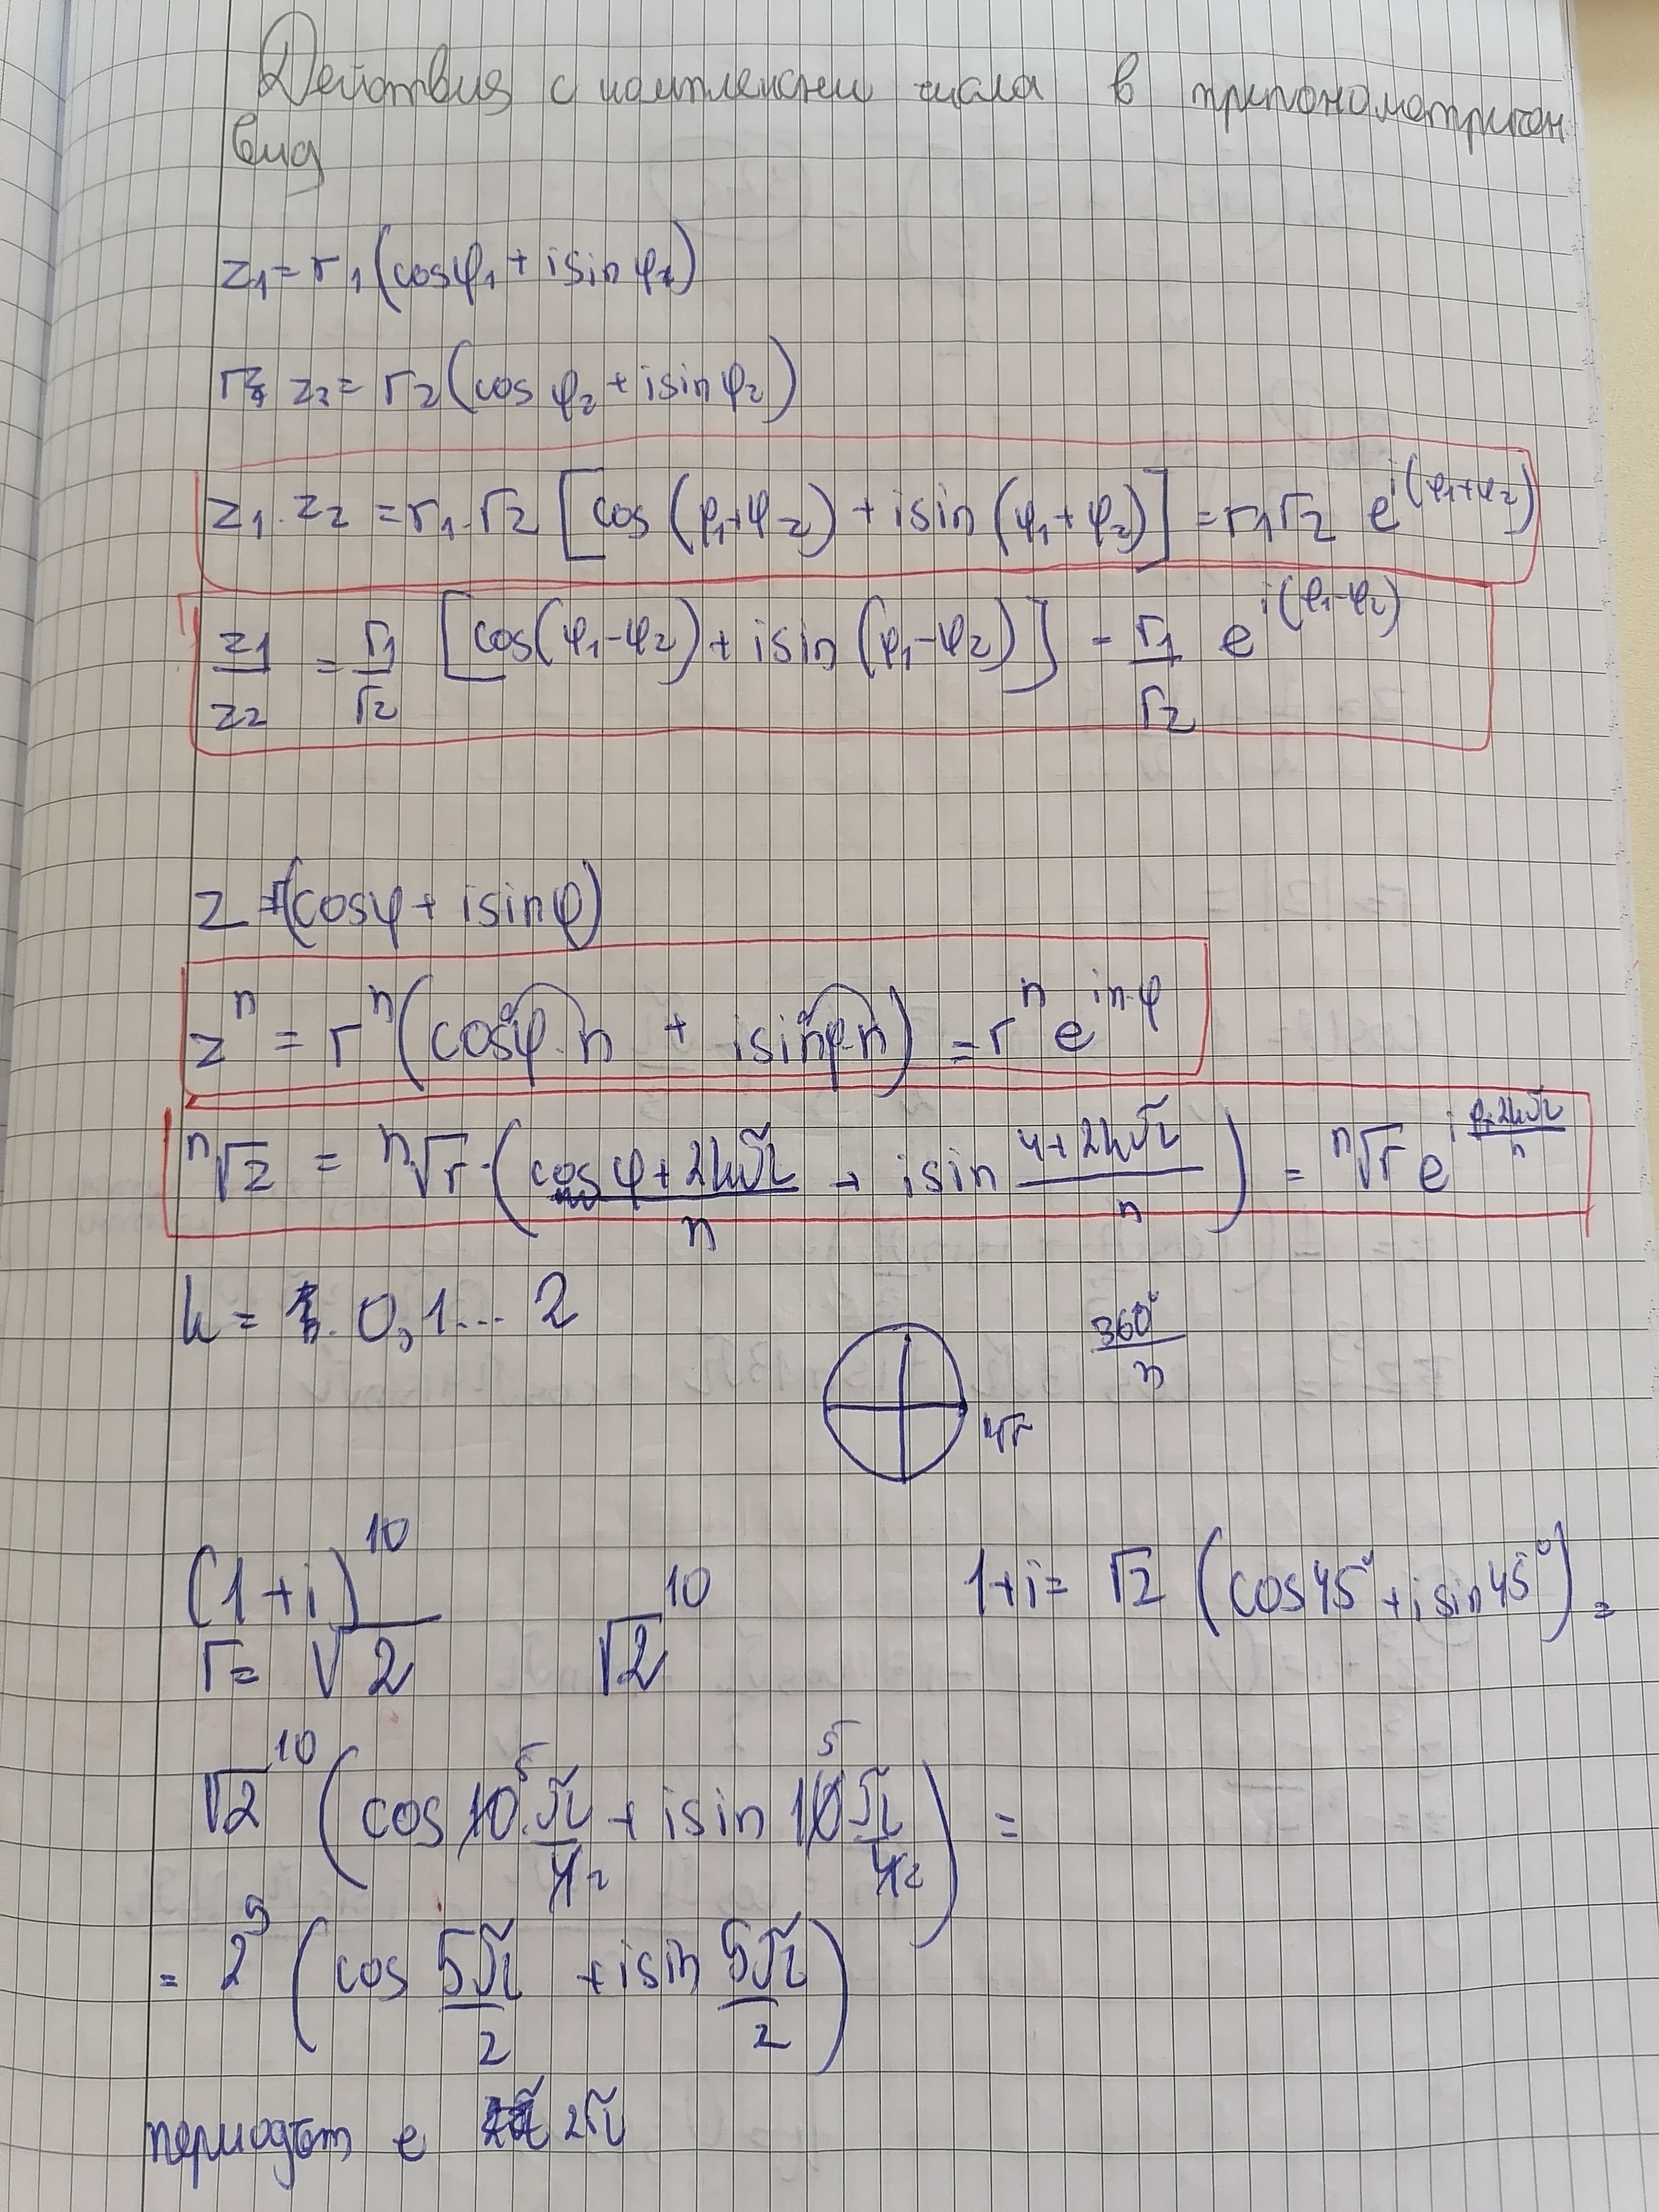 Действия с комплексни числа в тригонометричен
вид
z₁ = r₁(cosφ₁ + isin φ₁)
z₂ = r₂(cos φ₂ + isin φ₂)
z₁.z₂ = r₁.r₂ [cos (φ₁+φ₂) + isin (φ₁+φ₂)] = r₁r₂ e^i(φ₁+φ₂)
z₁/z₂ = r₁/r₂ [cos(φ₁-φ₂) + isin (φ₁-φ₂)] = r₁/r₂ e^i(φ₁-φ₂)
z =r(cosφ + isinφ)
z^n = r^n (cosφ.n + isinφ.n) = r^n e^in.φ
ⁿ√z = ⁿ√r.(cos (φ+2kπ)/n + isin (φ+2kπ)/n) = ⁿ√r e^i (φ+2kπ)/n
k = 0,1... 2
360°/n
(1+i)^10
r = √2
√2^10
1+i = √2 (cos45° + isin45°) =
√2^10 (cos 10^5.π/4 2 + isin 10^5 π/4 2) =
= 2^5 (cos 5π/2 + isin 5π/2)
периодът е 2π